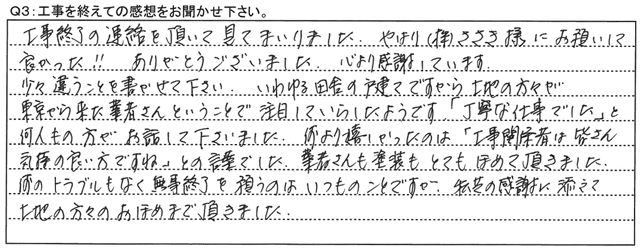 Q3：工事を終えての感想をお聞かせ下さい。
工事終了の連絡を頂いて見てまいりました。やはり(株)ささき様にお願いして
良かった!! ありがとうございました。心より感謝しています。
少々違うことを書かせて下さい。いわゆる田舎の戸建てですから土地の方々が
東京から来た業者さんということで注目していらしたようです。「丁寧な仕事でした」と
何人もの方がお話して下さいました。何より嬉しかったのは「工事関係者は皆さん
気持の良い方ですね」との言葉でした。業者さんも塗装もとてもほめて頂きました。
何のトラブルもなく無事終了を願うのはいつものことですが、私共の感謝に添えて
土地の方々のおほめまで頂きました。